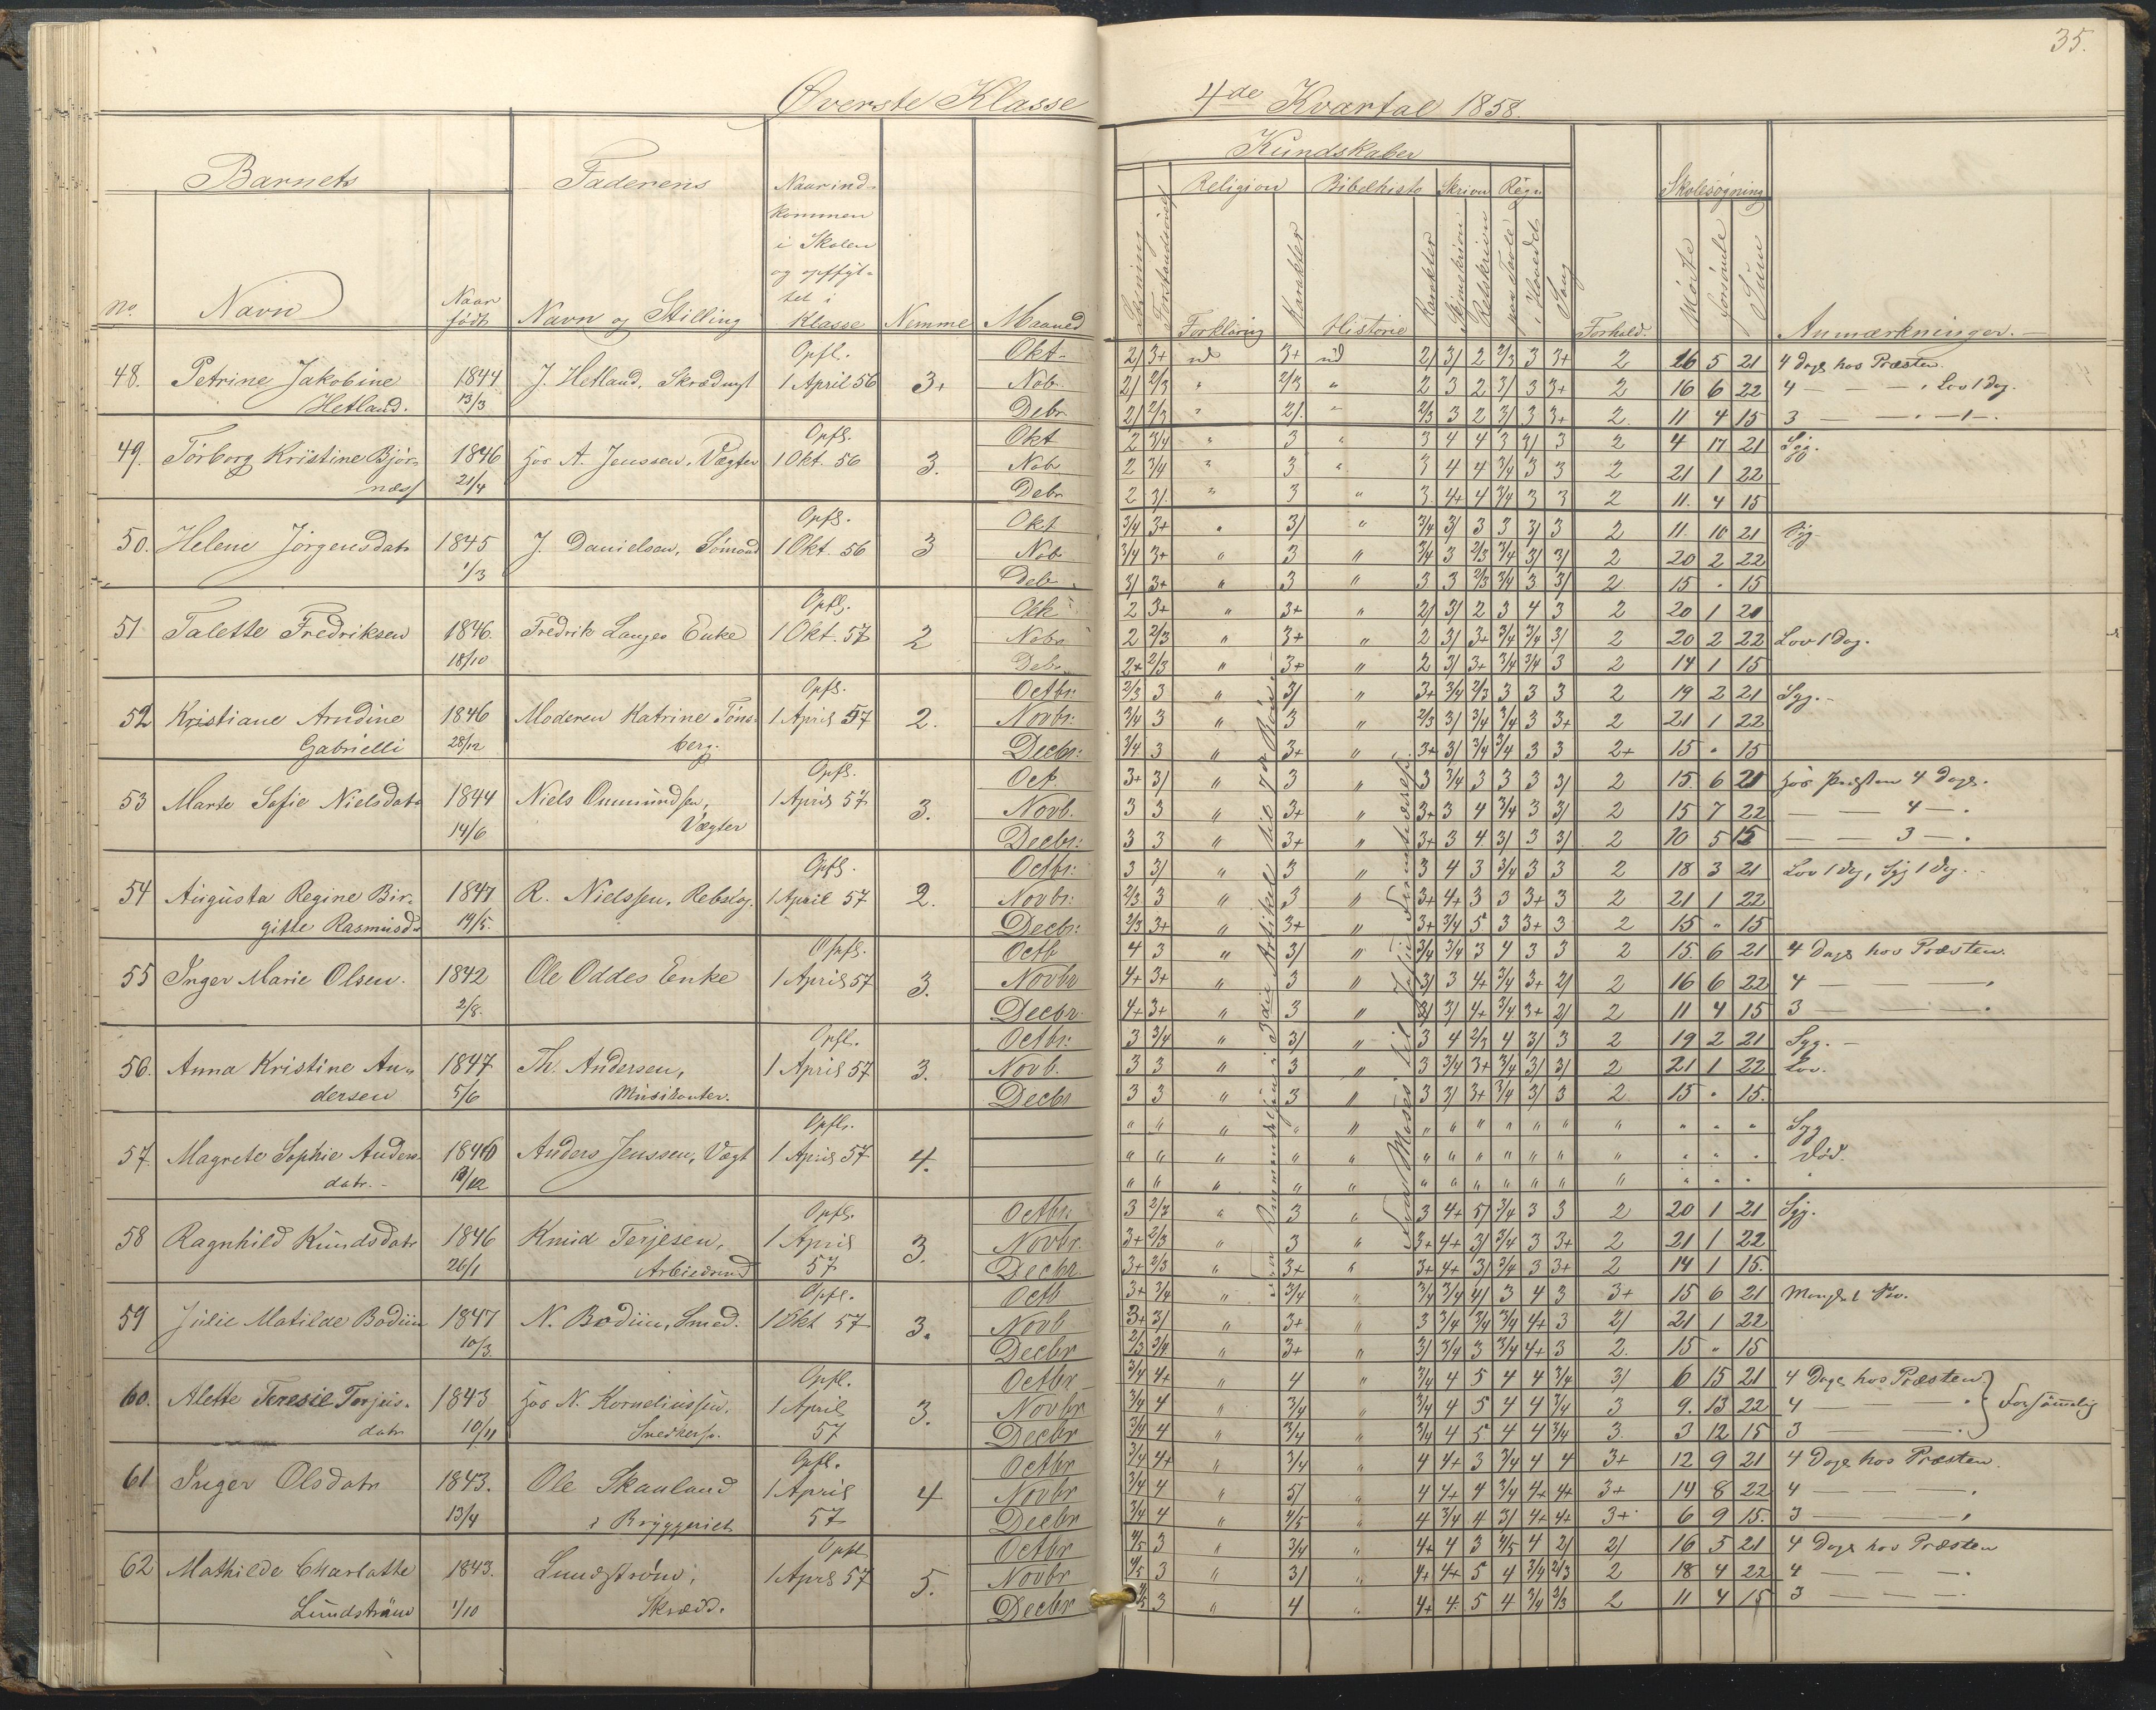 35.
Øverste Klasse 4de Kvartal 1858.
Barnets Faderens Naar ind- Kundskaber
kommen Religion Bibelhisto Skrivn Regn Skolesøgning
i Skolen
og opflyt-
tet i
No. Navn Naar født Navn og Stilling Klasse Nemme Maaned Læsning Forklaring Karakter Historie Karakter Sang Forhold. Mødte Forsömte Sum Anmærkninger.
48. Petrine Jakobine 1844 J. Hetland. Opfl. 1 April 56 3+ Okt. 2/ 3+ ud 3+ ud 2/ 3/ 2 2/3 3 3+ 2 16 5 21 4 Dage hos Præsten
Hetland. 13/3 Nob. 2/ 2/3 " 2/3 " 2 3 2 3/ 3 3+ 2 16 6 22 4 — — " Lov 1 Dag.
Debr 2/ 2/3 " 2/. " 2/3 3 2 3/ 3 3+ 2 11 4 15 3
49. Törborg Kristine Bjør- 1846 hos A. Jenssen. Vægter Opfl. 1 Okt. 56 3. Okt 2 3/4 " 3 " 3 4 4 3 3/ 3 2 4 17 21 Syg.
næs 21/4 Nob 2 3/4 " 3 " 3 4 4 3/4 3 3 2 21 1 22
Debr 2 3/. " 3 " 3 4+ 4 3/4 3 3 2 11. 4 15
50. Helene Jörgensdatr 1845 J. Danielsen, Sömand Opfl. 1 Okt. 56 3 Okt 3/4 3+ " 3/ " 3/4 3/ 3 3 3/ 3 2 11. 10 21 Syg.
1/3 Nob 3/4 3+ " 3 " 3/4 3 2/3 3/4 3/ 3/ 2 20 2 22
Deb 3/ 3+ " 3 " 3 3 2/3 3/4 3 3/ 2 15 " 15
51 Talette Fredriksen 1846. Fredrik Langes Enke Opfl. 1 Okt. 57 2 Okt 2 3+ " 3+ " 2/ 3/ 2 3 4 3 2 20 1 21
18/10 Nobr 2 2/3 " 3+ " 2 3/ 3+ 3/4 3/4 3/ 2 20 2 22 Lov 1 Dag.
Debr 2+ 2/3 " 3+ " 2 3/ 3+ 3/4 3/4 3 2 14 1 15
52 Kristiane Arndine 1846 Moderen Katrine Töns- Opfl. 1 April 57 2. Octbr: 2/3 3 " 3/ " 3+ 3/4 2/3 3 3 3 2 19 2 21 Syg.
Gabrielli 28/12 berg. Novbr: 3/4 3 " 3 " 2/3 3/ 3/4 3/4 3 3+ 2 21 1 22
Decbr: 3/4 3 " 3+ " 3+ 3/ 3/4 3/4 3 3 2+ 15 " 15
53 Marte Sofie Nielsdatr 1844 Niels Ommundsen, Opfl. 1 April 57 3. Oct. 3+ 3/ " 3 " 3 3/4 3 3 3 3/ 2 15. 6 21 hos Præsten 4 Dage.
14/6 Vægter Novb. 3 3 " 3+ " 3+ 3 4 3/4 3 3/ 2 15 7 22 — — 4 — .
Decbr: 3 3 " 3+ " 3+ 3 4. 3/ 3 3/ 2 10 5 15 — — 3 — .
54 Augusta Regine Bir- 1847 R. Nielssen, Rebslag. Opfl. 1 April 57 2. Octbr: 3 3/ " 3 " 3 4 3 3/4 3 3 2 18 3 21 Lov 1 Dag, Syg 1 Dag.
gitte Rasmusd. 19/5. Novbr: 2/3 3 " 3 " 3+ 4+ 3 3 3+ 3 2 21 1 22
Decbr: 2/3 3+ " 3+ " 3+ 3/4 5 3 3+ 3 2 15 " 15
55 Inger Marie Olsen. 1842 Ole Oddes Enke Opfl. 1 April 57 3. Octb 4 3 " 3/ " 3/4 3/4 3 4 3 3 2 15. 6 21 4 Dage hos Præsten.
2/8. Novbr 4+ 3+ " 3 " 3/ 3 4+ 3/4 3+ 2/ 2 16 6 22 4 — — .
Decbr. 4+ 3+ " 3 " 3/ 3/ 4+ 3/4 3+ 2/ 2 11 4 15 3 — — .
56. Anna Kristine An- 1847 Th. Andersen, Opfl. 1 April 57 3. Octbr: 3 3/4 " 3/ " 3 4 2/3 4 3/ 3 2 19 2 21 Syg. —
dersen 5/6 Musikanter. Novb. 3 3 " 3 " 3 3/4 3+ 3/4 3/ 3/ 2 21 1 22 Lov.
Decbr 3 3 " 3 " 3 3/ 3+ 3/4 3/ 3 2 15 " 15.
57. Magrete Sophie Anders- 1846 Anders Jenssen, Vægt Opfl. 1 April 57 4. Syg
datr. /12 Död.
58 Ragnhild Knudsdatr 1846 Knud Terjesen, Opfl. 1 April 57 3. Octbr: 3 2/3 " 3 " 3 4+ 5/ 3/4 3 3 2 20 1 21 Syg.
26/1 Arbeidsmd Novbr. 3+ 2/3 " 3 " 3+ 4+ 3/ 3/4 3 3+ 2 21 1 22
Decbr. 3+ 2/3 " 3+ " 3+ 4+ 3/ 3/4 3 3+ 2 14 1 15.
59 Julie Matilde Bodiin 1847 N. Bodiin, Smed. Opfl. 1 Okt 57 3. Octb 3+ 3/4 " 3/4 " 3/4 3/4 4/ 3 4 3 3+ 15 6 21
10/3. Novb 3+ 3/ " 3+ " 3 3/4 3/4 3/4 4+ 3 2/ 21 1 22
Decbr 2/3 3/4 " 3+ " 3/ 3/4 3 3/4 4+ 3 2. 15 " 15
60. Alette Teresie Terjes- 1843 hos N. Korneliussen, Opfl. 1 April 57 3. Octbr 3/4 4+ " 4 " 3/4 4 5 4 4 3/4 3/ 6 15 21 4 Dage hos Præsten.
datr 10/11 Snedkersv. Novbr 3/4 4 " 3/4 " 3/4 4 5 4 4 3/4 3 9. 13 22 4 — — . Forsömelig
Decbr 3/4 4 " 3/4 " 3/4 4 5 4 4 3/4 3. 3 12 15 3 — — .
61 Inger Olsdatr 1843. Ole Skauland Opfl. 1 April 57 4 Octbr 3/4 4+ " 3/4 " 4 4+ 3 3/4 4 4 3+ 12 9 21 4 Dage hos Præsten.
13/4 i Bryggeriet Novbr 3/4 4 " 5/ " 4 4+ 4 3/4 4+ 4+ 3+ 14 8 22 4 — — .
Decbr 3/4 4 " 4/5 " 4 3/4 4 3/ 4+ 4+ 3+ 6 9 15. 3 — — .
62 Mathilde Charlatte 1843. Lundström, Opfl 1 April 57 5. Octbr 4/5 3 " 3/4 " 4+ 4 3 4/5 4 2/ 2/ 16 5 21 4 Dage hos Præsten
Lundström 1/10 Skrædd. Novbr 4/5 3 " 3/ " 4+ 4+ 5 4 3/4 2/3 2 18 4 22 4 — — .
Decbr 4/5 3 " 4 " 4+ 4. 5 4 3/4 3/3 2 11 4 15 3 — —